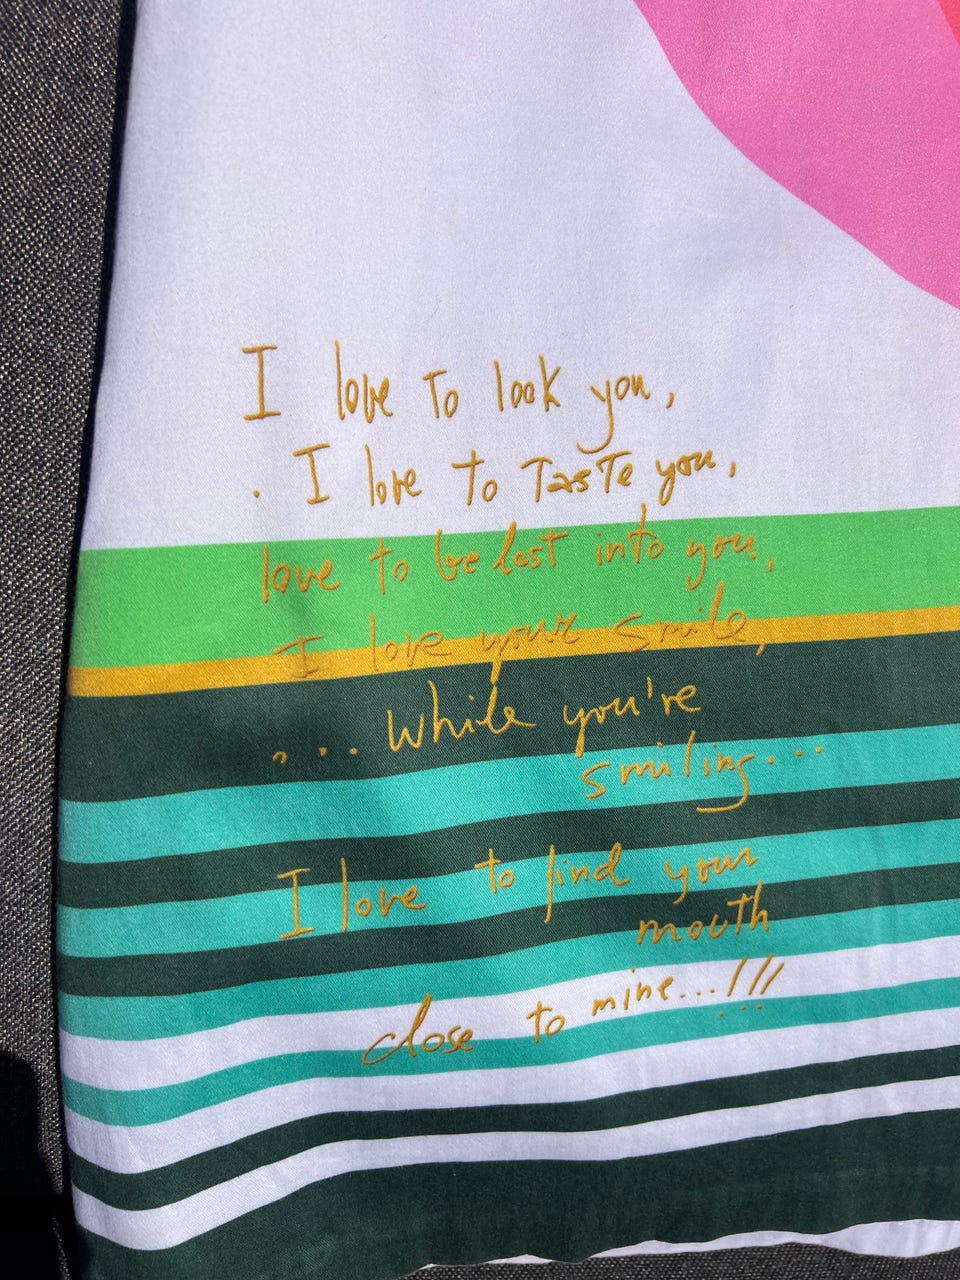 I love to look you,
. I love to taste you,
love to be lost into you,
I love your smile,
... while you're
smiling...
I love to find your
mouth
close to mine...!!!